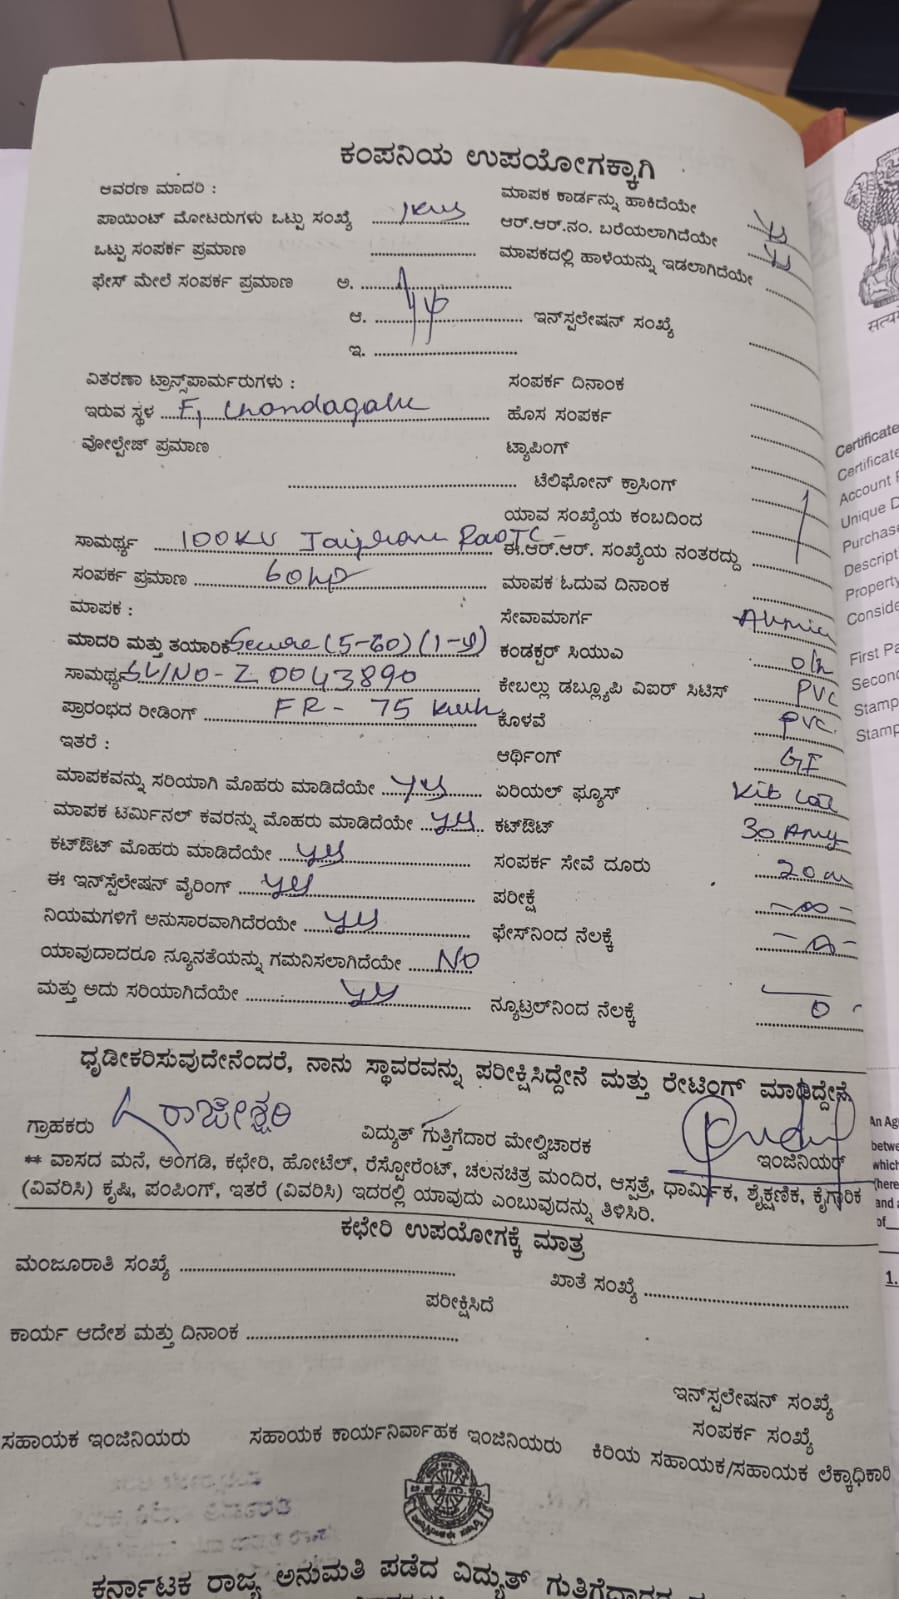 ಕಂಪನಿಯ ಉಪಯೋಗಕ್ಕಾಗಿ
ಆವರಣ ಮಾದರಿ :
ಮಾಪಕ ಕಾರ್ಡನ್ನು ಹಾಕಿದೆಯೇ
ಪಾಯಿಂಟ್ ಮೋಟರುಗಳು ಒಟ್ಟು ಸಂಖ್ಯೆ
ಆರ್.ಆರ್.ನಂ. ಬರೆಯಲಾಗಿದೆಯೇ
ಒಟ್ಟು ಸಂಪರ್ಕ ಪ್ರಮಾಣ
ಮಾಪಕದಲ್ಲಿ ಹಾಳೆಯನ್ನು ಇಡಲಾಗಿದೆಯೇ
ಫೇಸ್ ಮೇಲೆ ಸಂಪರ್ಕ ಪ್ರಮಾಣ ಅ.
ಆ. ಇನ್‌ಸ್ಟಲೇಷನ್ ಸಂಖ್ಯೆ
ಇ.
ವಿತರಣಾ ಟ್ರಾನ್ಸ್‌ಪಾರ್ಮರುಗಳು :
ಸಂಪರ್ಕ ದಿನಾಂಕ
ಇರುವ ಸ್ಥಳ
ಹೊಸ ಸಂಪರ್ಕ
ವೋಲ್ಟೇಜ್ ಪ್ರಮಾಣ
ಟ್ಯಾಪಿಂಗ್
ಟೆಲಿಫೋನ್ ಕ್ರಾಸಿಂಗ್
ಯಾವ ಸಂಖ್ಯೆಯ ಕಂಬದಿಂದ
ಸಾಮರ್ಥ್ಯ 100KV
ಈ.ಆರ್.ಆರ್. ಸಂಖ್ಯೆಯ ನಂತರದ್ದು
ಸಂಪರ್ಕ ಪ್ರಮಾಣ 60HP
ಮಾಪಕ ಓದುವ ದಿನಾಂಕ
ಮಾಪಕ :
ಸೇವಾಮಾರ್ಗ
ಮಾದರಿ ಮತ್ತು ತಯಾರಿಕೆ Secure (5-60) (1-φ)
ಕಂಡಕ್ಟರ್ ಸಿಯುಎ o/h
ಸಾಮರ್ಥ್ಯ SL/NO - Z 0043890
ಕೇಬಲ್ಲು ಡಬ್ಲ್ಯೂಪಿ ವಿಐರ್ ಸಿಟಿಸ್ PVC
ಪ್ರಾರಂಭದ ರೀಡಿಂಗ್ FR - 75 kwh
ಕೊಳವೆ PVC.
ಇತರೆ :
ಆರ್ಥಿಂಗ್ GI
ಮಾಪಕವನ್ನು ಸರಿಯಾಗಿ ಮೊಹರು ಮಾಡಿದೆಯೇ yes
ಏರಿಯಲ್ ಫ್ಯೂಸ್ Kit cat
ಮಾಪಕ ಟರ್ಮಿನಲ್ ಕವರನ್ನು ಮೊಹರು ಮಾಡಿದೆಯೇ yes
ಕಟ್‌ಔಟ್ 30 Amp
ಕಟ್‌ಔಟ್ ಮೊಹರು ಮಾಡಿದೆಯೇ yes
ಸಂಪರ್ಕ ಸೇವೆ ದೂರು 20 m
ಈ ಇನ್‌ಸ್ಟಲೇಷನ್ ವೈರಿಂಗ್ yes
ಪರೀಕ್ಷೆ - ∞ -
ನಿಯಮಗಳಿಗೆ ಅನುಸಾರವಾಗಿದೆರಯೇ yes
ಫೇಸ್‌ನಿಂದ ನೆಲಕ್ಕೆ
ಯಾವುದಾದರೂ ನ್ಯೂನತೆಯನ್ನು ಗಮನಿಸಲಾಗಿದೆಯೇ NO
ಮತ್ತು ಅದು ಸರಿಯಾಗಿದೆಯೇ yes
ನ್ಯೂಟ್ರಲ್‌ನಿಂದ ನೆಲಕ್ಕೆ 0
ಧೃಡೀಕರಿಸುವುದೇನೆಂದರೆ, ನಾನು ಸ್ಥಾವರವನ್ನು ಪರೀಕ್ಷಿಸಿದ್ದೇನೆ ಮತ್ತು ರೇಟಿಂಗ್ ಮಾಡಿದ್ದೇನೆ
ಗ್ರಾಹಕರು ರಾಜೇಶ್ವರಿ ವಿದ್ಯುತ್ ಗುತ್ತಿಗೆದಾರ ಮೇಲ್ವಿಚಾರಕ ಇಂಜಿನಿಯರ್
** ವಾಸದ ಮನೆ, ಅಂಗಡಿ, ಕಛೇರಿ, ಹೋಟೆಲ್, ರೆಸ್ಟೋರೆಂಟ್, ಚಲನಚಿತ್ರ ಮಂದಿರ, ಆಸ್ಪತ್ರೆ, ಧಾರ್ಮಿಕ, ಶೈಕ್ಷಣಿಕ, ಕೈಗಾರಿಕ
(ವಿವರಿಸಿ) ಕೃಷಿ, ಪಂಪಿಂಗ್, ಇತರೆ (ವಿವರಿಸಿ) ಇದರಲ್ಲಿ ಯಾವುದು ಎಂಬುವುದನ್ನು ತಿಳಿಸಿರಿ.
ಕಛೇರಿ ಉಪಯೋಗಕ್ಕೆ ಮಾತ್ರ
ಮಂಜೂರಾತಿ ಸಂಖ್ಯೆ
ಖಾತೆ ಸಂಖ್ಯೆ
ಪರೀಕ್ಷಿಸಿದೆ
ಕಾರ್ಯ ಆದೇಶ ಮತ್ತು ದಿನಾಂಕ
ಇನ್‌ಸ್ಟಲೇಷನ್ ಸಂಖ್ಯೆ
ಸಂಪರ್ಕ ಸಂಖ್ಯೆ
ಸಹಾಯಕ ಇಂಜಿನಿಯರು ಸಹಾಯಕ ಕಾರ್ಯನಿರ್ವಾಹಕ ಇಂಜಿನಿಯರು ಕಿರಿಯ ಸಹಾಯಕ/ಸಹಾಯಕ ಲೆಕ್ಕಾಧಿಕಾರಿ
ಕರ್ನಾಟಕ ರಾಜ್ಯ ಅನುಮತಿ ಪಡೆದ ವಿದ್ಯುತ್ ಗುತಿಗೆದಾರರ
Certificate
Certificate
Account
Unique
Purchase
Property
First Pa
Second
Stamp
Stamp
1.